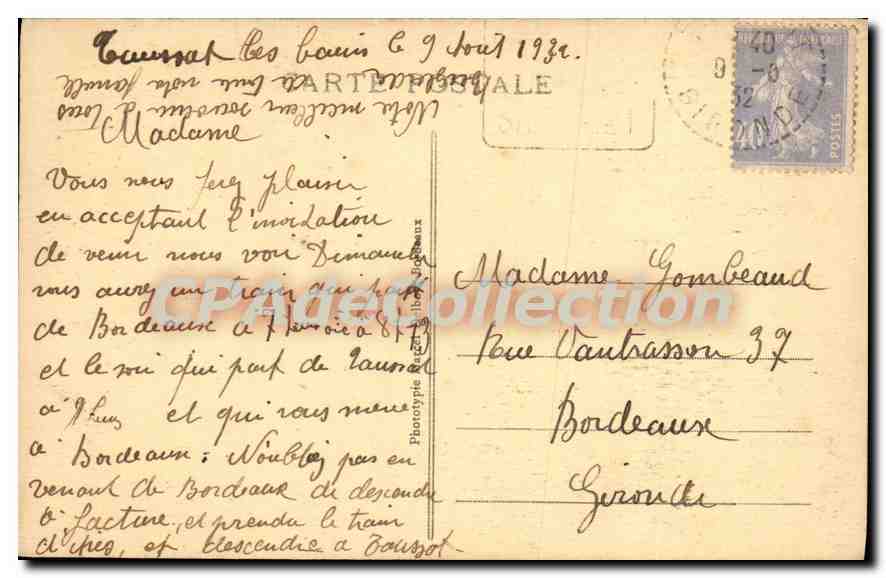 Taussat les bains le 9 Aout 1932.
Notre meilleur souvenir a tous
de toute notre famille
CARTE POSTALE
Madame
Vous nous ferez plaisir
en acceptant l'invitation
de venir nous voir Dimanche
vous aurez un train qui part
de Bordeaux a 7 heures
et le soir qui part de Taussat
a 9 heures et qui vous mene
a Bordeaux. N'oubliez pas en
venant de Bordeaux de descendre
a facture, et prendre le train
et descendre a Taussat.
Phototypie Marcel Delboy, Bordeaux
40
9 -8
32
GIRONDE
POSTES
Madame Gombeaud
Rue Vantrasson 37
Bordeaux
Gironde
CPAdeCollection